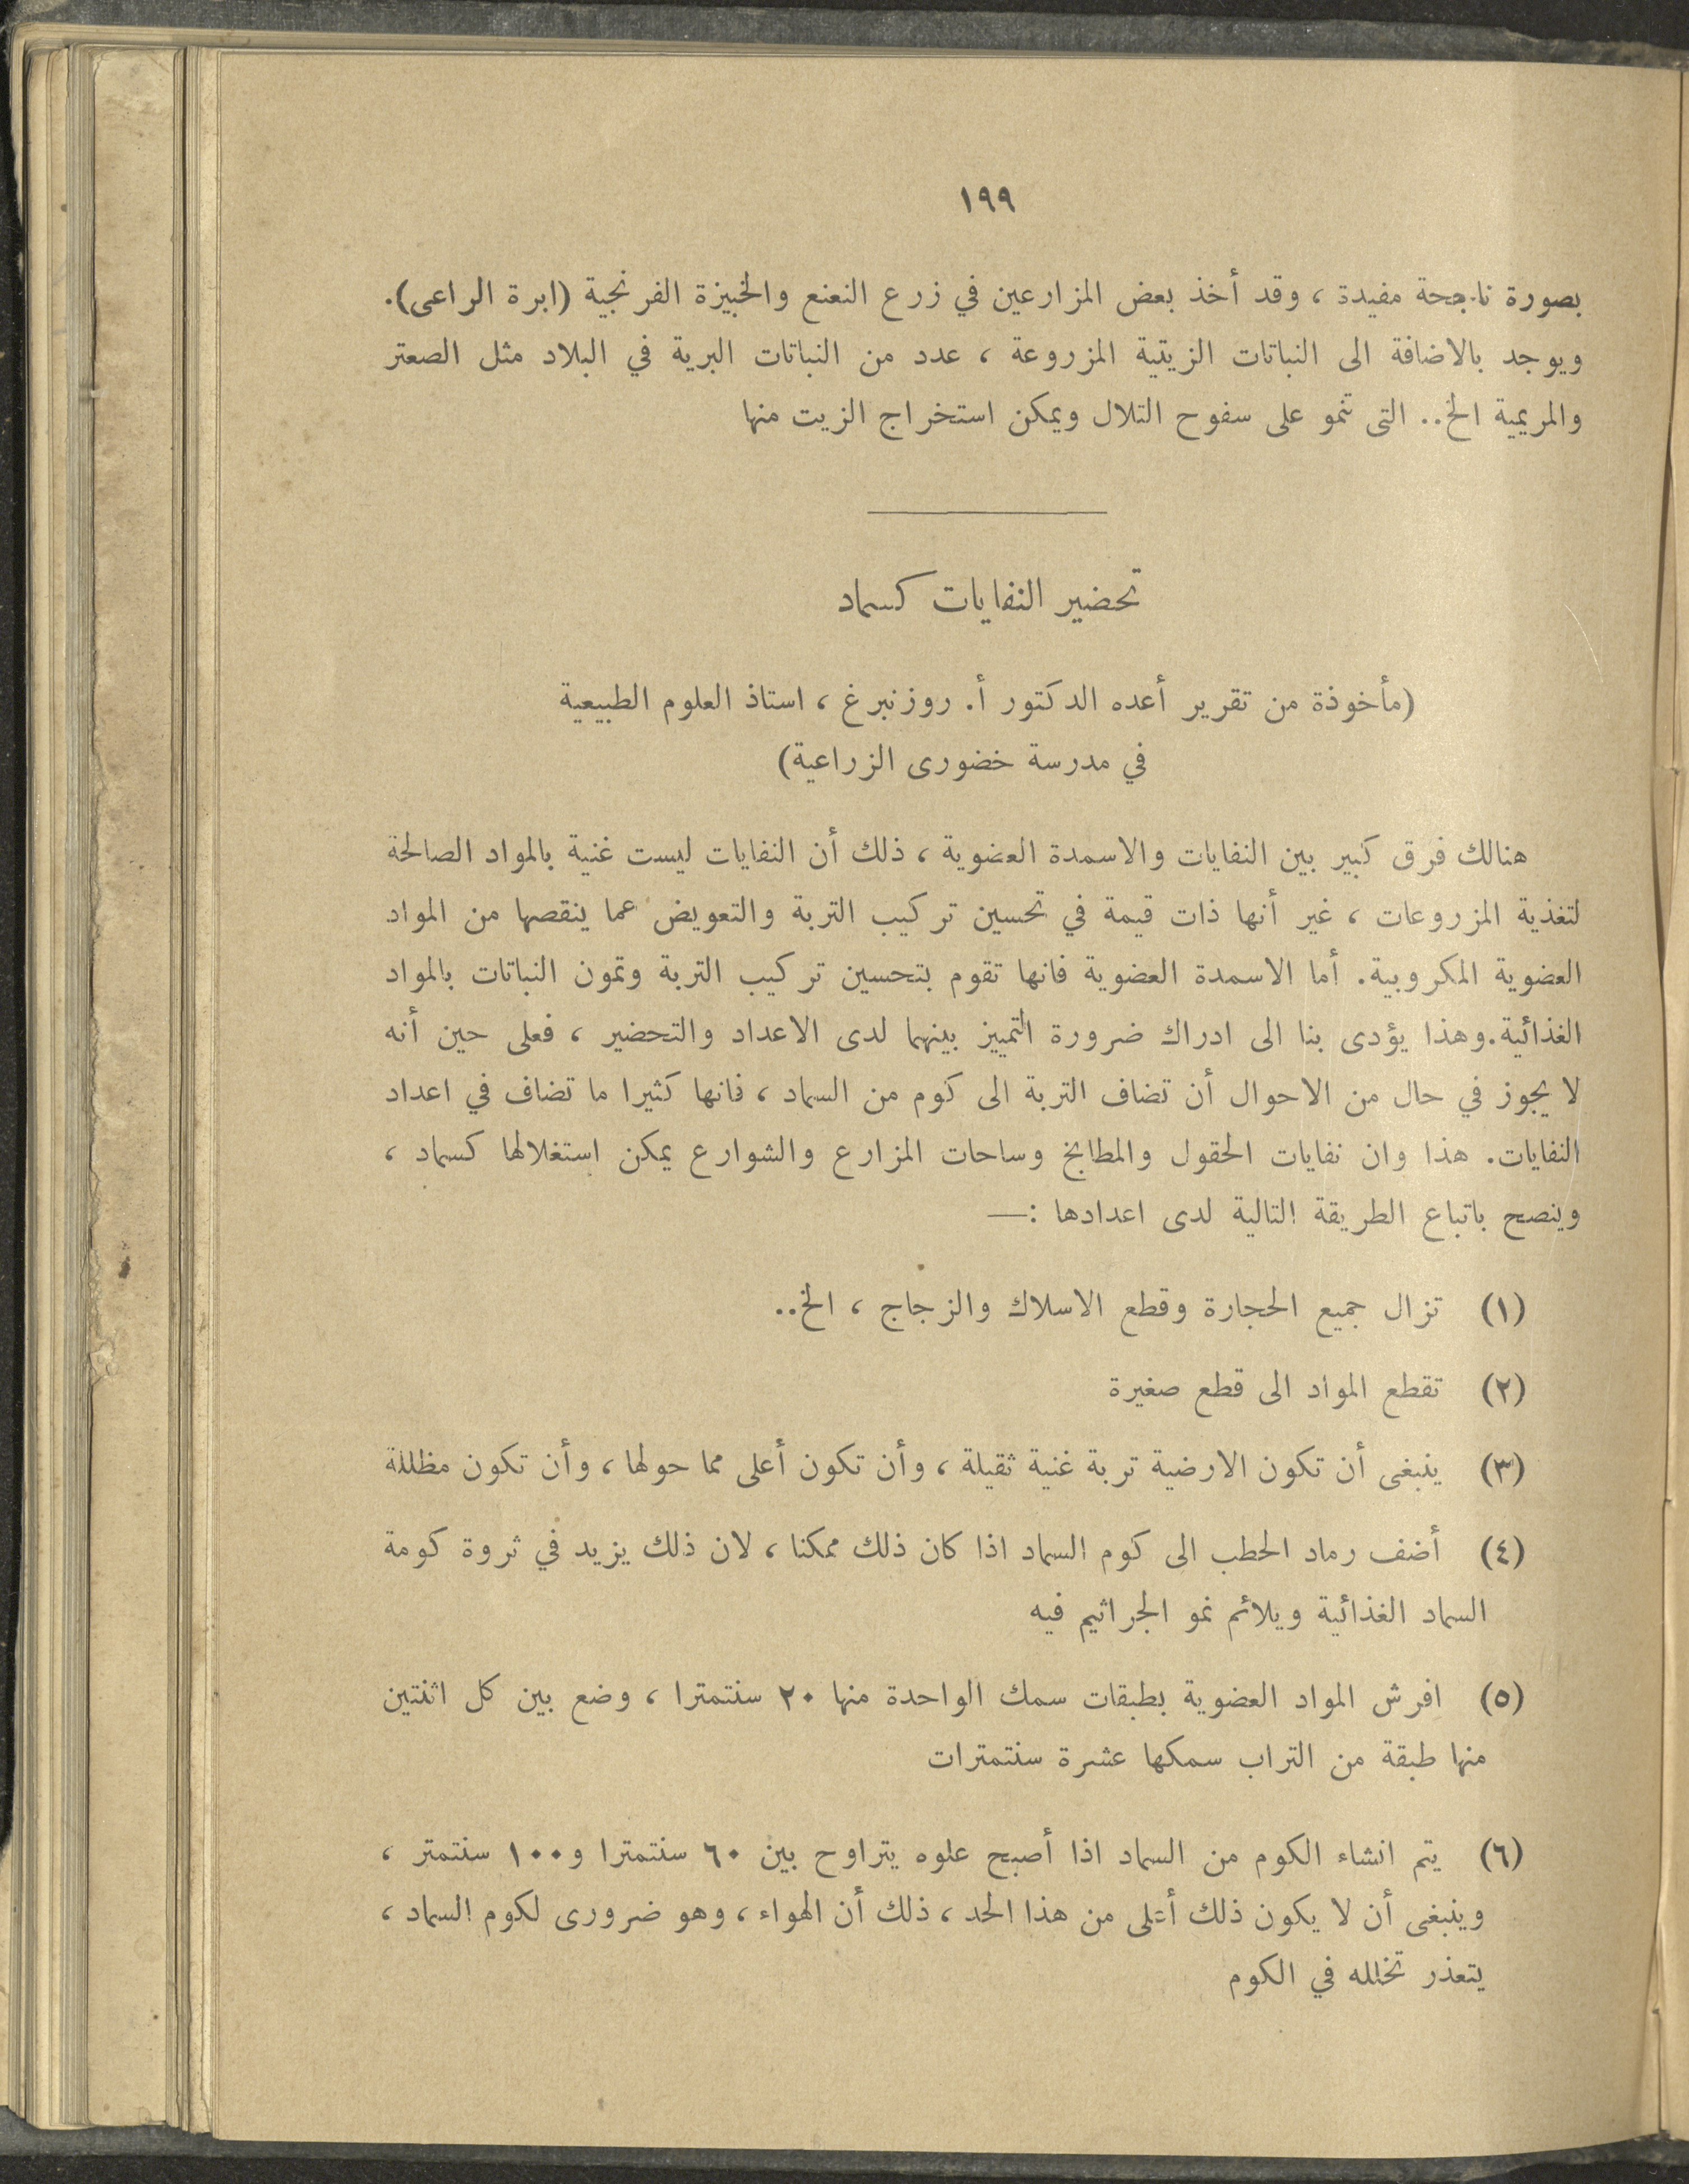 ١٩٩
بصورة ناجحة مفيدة ، وقد أخذ بعض المزارعين في زرع النعنع والخبيزة الفرنجية (ابرة الراعى).
ويوجد بالاضافة الى النباتات الزيتية المزروعة ، عدد من النباتات البرية في البلاد مثل الصعتر
والمريمية الخ.. التى تنمو على سفوح التلال ويمكن استخراج الزيت منها
تحضير النفايات كسماد
(مأخوذة من تقرير أعده الدكتور أ. روزنبرغ ، استاذ العلوم الطبيعية
في مدرسة خضورى الزراعية)
هنالك فرق كبير بين النفايات والاسمدة العضوية ، ذلك أن النفايات ليست غنية بالمواد الصالحة
لتغذية المزروعات ، غير أنها ذات قيمة في تحسين تركيب التربة والتعويض عما ينقصها من المواد
العضوية المكروبية. أما الاسمدة العضوية فانها تقوم بتحسين تركيب التربة وتمون النباتات بالمواد
الغذائية.وهذا يؤدى بنا الى ادراك ضرورة التمييز بينهما لدى الاعداد والتحضير ، فعلى حين أنه
لا يجوز في حال من الاحوال أن تضاف التربة الى كوم من السماد ، فانها كثيرا ما تضاف في اعداد
النفايات. هذا وان نفايات الحقول والمطابخ وساحات المزارع والشوارع يمكن استغلالها كسماد ،
وينصح باتباع الطريقة التالية لدى اعدادها :—
(١) تزال جميع الحجارة وقطع الاسلاك والزجاج ، الخ..
(٢) تقطع المواد الى قطع صغيرة
(٣) ينبغى أن تكون الارضية تربة غنية ثقيلة ، وأن تكون أعلى مما حولها ، وأن تكون مظللة
(٤) أضف رماد الحطب الى كوم السماد اذا كان ذلك ممكنا ، لان ذلك يزيد في ثروة كومة
السماد الغذائية ويلائم نمو الجراثيم فيه
(٥) افرش المواد العضوية بطبقات سمك الواحدة منها ٢٠ سنتمترا ، وضع بين كل اثنتين
منها طبقة من التراب سمكها عشرة سنتمترات
(٦) يتم انشاء الكوم من السماد اذا أصبح علوه يتراوح بين ٦٠ سنتمترا و١٠٠ سنتمتر ،
وينبغى أن لا يكون ذلك أعلى من هذا الحد ، ذلك أن الهواء ، وهو ضرورى لكوم السماد ،
يتعذر تخلله في الكوم